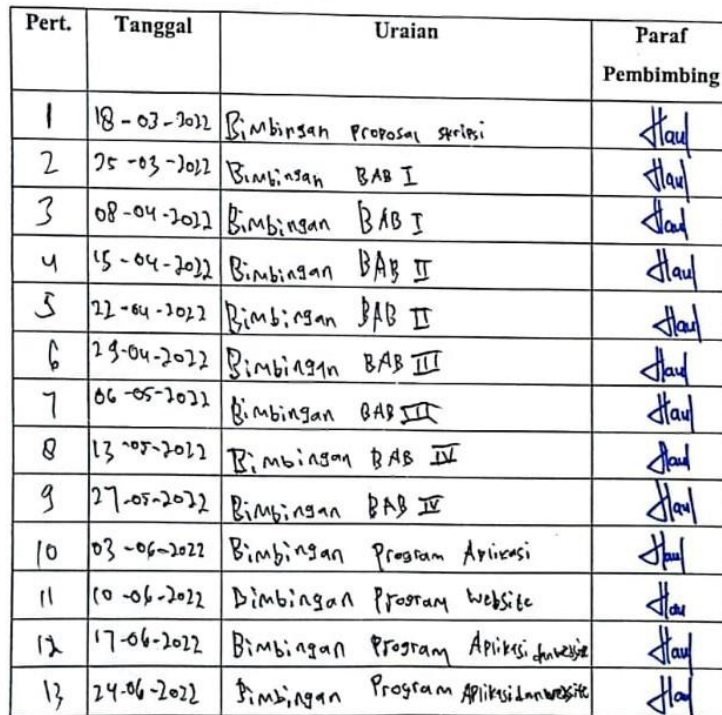 Pert. Tanggal Uraian Paraf Pembimbing
1 18-03-2022 Bimbingan Proposal skripsi
2 25-03-2022 Bimbingan BAB I
3 08-04-2022 Bimbingan BAB I
4 15-04-2022 Bimbingan BAB II
5 22-04-2022 Bimbingan BAB II
6 29-04-2022 Bimbingan BAB III
7 06-05-2022 Bimbingan BAB III
8 13-05-2022 Bimbingan BAB IV
9 27-05-2022 Bimbingan BAB IV
10 03-06-2022 Bimbingan Program Aplikasi
11 10-06-2022 Bimbingan Program Website
12 17-06-2022 Bimbingan Program Aplikasi dan website
13 24-06-2022 Bimbingan Program Aplikasi dan website